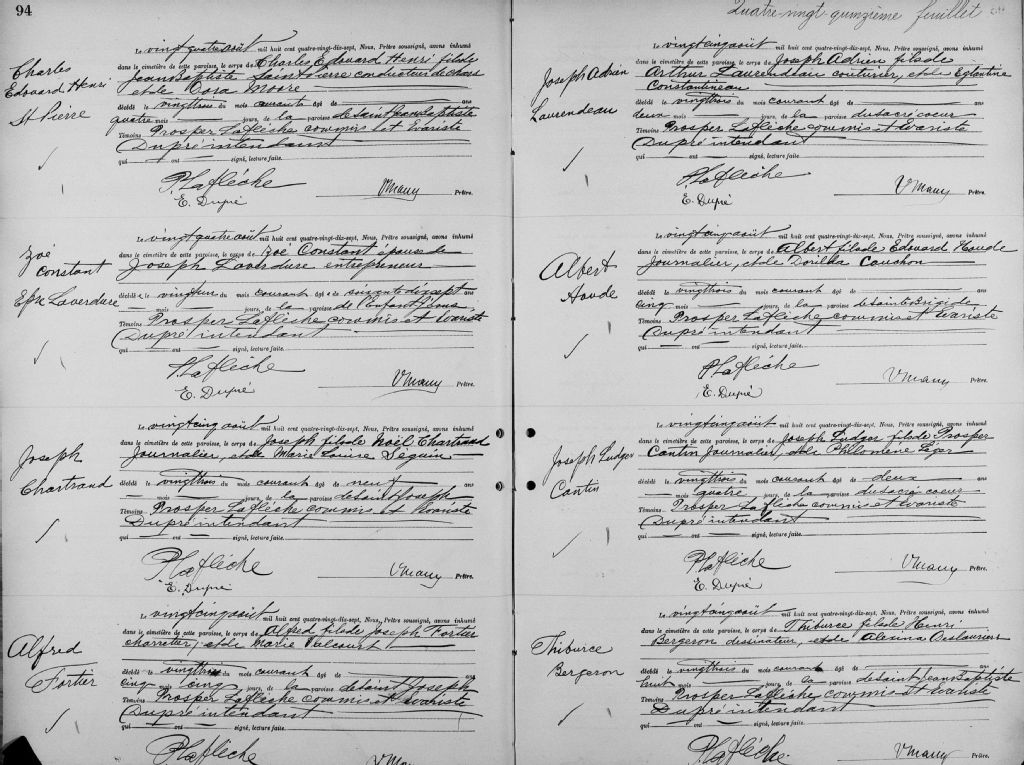 94
Charles
Edouard Henri
St Pierre
Le vingt quatre août mil huit cent quatre-vingt-dix-sept, Nous, Prêtre soussigné, avons inhumé
dans le cimetière de cette paroisse, le corps de Charles Edouard Henri fils de
Jean Baptiste Saint Pierre conducteur de chars
et de Cora Moore
décédé le vingttrois du mois courant âgé de ans
quatre mois jours, de la paroisse de Saint Jean Baptiste
Témoins Prosper Laflèche commis et Evariste
Dupré intendant
qui ont signé, lecture faite.
P. Laflèche
E. Dupré
Prêtre.
Zoé
Constant
Epse Laverdure
Le vingt quatre août mil huit cent quatre-vingt-dix-sept, Nous, Prêtre soussigné, avons inhumé
dans le cimetière de cette paroisse, le corps de Zoé Constant épouse de
Joseph Laverdure entrepreneur
décédée le vingtun du mois courant âgée soixante dix sept ans
mois jours, de la paroisse de l'Enfant Jésus
Témoins Prosper Laflèche commis et Evariste
Dupré intendant
qui ont signé, lecture faite.
P. Laflèche
E. Dupré
Prêtre.
Joseph
Chartrand
Le vingtcinq août mil huit cent quatre-vingt-dix-sept, Nous, Prêtre soussigné, avons inhumé
dans le cimetière de cette paroisse, le corps de Joseph fils de Noël Chartrand
Journalier, et de Marie Louise Seguin
décédé le vingttrois du mois courant âgé de neuf ans
mois jours, de la paroisse de Saint Joseph
Témoins Prosper Laflèche commis et Evariste
Dupré intendant
qui ont signé, lecture faite.
P. Laflèche
E. Dupré
Prêtre.
Alfred
Fortier
Le vingtcinq août mil huit cent quatre-vingt-dix-sept, Nous, Prêtre soussigné, avons inhumé
dans le cimetière de cette paroisse, le corps de Alfred fils de Joseph Fortier
charretier, et de Marie Valcourt
décédé le vingttrois du mois courant âgé de ans
cinq mois cinq jours, de la paroisse de Saint Joseph
Témoins Prosper Laflèche commis et Evariste
Dupré intendant
qui ont signé, lecture faite.
P. Laflèche
Quatre-vingt-quinzième feuillet
Joseph Adrien
Laurendeau
Le vingtcinq août mil huit cent quatre-vingt-dix-sept, Nous, Prêtre soussigné, avons inhumé
dans le cimetière de cette paroisse, le corps de Joseph Adrien fils de
Arthur Laurendeau couturier, et de Eglantine
Constantineau
décédé le vingttrois du mois courant âgé de ans
deux mois jours, de la paroisse du Sacré coeur
Témoins Prosper Laflèche commis et Evariste
Dupré intendant
qui ont signé, lecture faite.
P. Laflèche
E. Dupré
Prêtre.
Albert
Houde
Le vingtcinq août mil huit cent quatre-vingt-dix-sept, Nous, Prêtre soussigné, avons inhumé
dans le cimetière de cette paroisse, le corps de Albert fils de Edouard Houde
Journalier, et de Dorilda Cauchon
décédé le vingttrois du mois courant âgé de ans
cinq mois jours, de la paroisse de Sainte Brigide
Témoins Prosper Laflèche commis et Evariste
Dupré intendant
qui ont signé, lecture faite.
P. Laflèche
E. Dupré
Prêtre.
Joseph Ludger
Cantin
Le vingtcinq août mil huit cent quatre-vingt-dix-sept, Nous, Prêtre soussigné, avons inhumé
dans le cimetière de cette paroisse, le corps de Joseph Ludger fils de Prosper
Cantin Journalier, et de Philomène Léger
décédé le vingttrois du mois courant âgé de deux ans
mois quatre jours, de la paroisse du Sacré coeur
Témoins Prosper Laflèche commis et Evariste
Dupré intendant
qui ont signé, lecture faite.
P. Laflèche
E. Dupré
Prêtre.
Thiburce
Bergeron
Le vingtcinq août mil huit cent quatre-vingt-dix-sept, Nous, Prêtre soussigné, avons inhumé
dans le cimetière de cette paroisse, le corps de Thiburce fils de Henri
Bergeron dessinateur, et de Alexina Deslauriers
décédé le vingttrois du mois courant âgé de ans
huit mois jours, de la paroisse de Saint Jean Baptiste
Témoins Prosper Laflèche commis et Evariste
Dupré intendant
qui ont signé, lecture faite.
P. Laflèche
Prêtre.